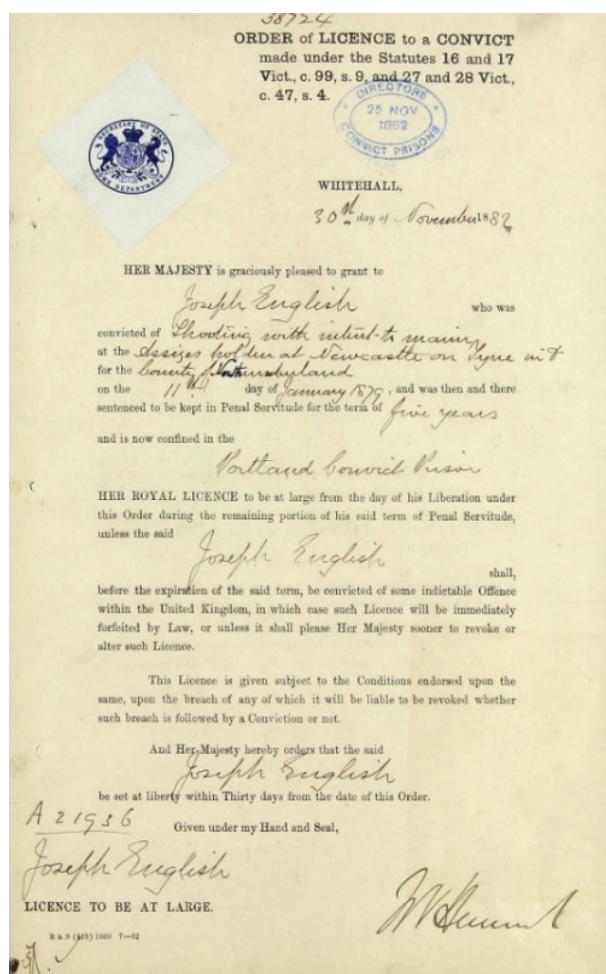 38724
ORDER of LICENCE to a CONVICT
made under the Statutes 16 and 17
Vict., c. 99, s. 9, and 27 and 28 Vict.,
c. 47, s. 4.
DIRECTORS
25 NOV
1882
CONVICT PRISONS
SECRETARY OF STATE
HOME DEPARTMENT
WHITEHALL,
30th day of November 1882
HER MAJESTY is graciously pleased to grant to
Joseph English who was
convicted of Shooting with intent to maim
at the Assizes holden at Newcastle on Tyne in &
for the County of Northumberland
on the 11th day of January 1879, and was then and there
sentenced to be kept in Penal Servitude for the term of five years
and is now confined in the
Portland Convict Prison
HER ROYAL LICENCE to be at large from the day of his Liberation under
this Order during the remaining portion of his said term of Penal Servitude,
unless the said
Joseph English
shall,
before the expiration of the said term, be convicted of some indictable Offence
within the United Kingdom, in which case such Licence will be immediately
forfeited by Law, or unless it shall please Her Majesty sooner to revoke or
alter such Licence.
This Licence is given subject to the Conditions endorsed upon the
same, upon the breach of any of which it will be liable to be revoked whether
such breach is followed by a Conviction or not.
And Her Majesty hereby orders that the said
Joseph English
be set at liberty within Thirty days from the date of this Order.
A 21936
Given under my Hand and Seal,
Joseph English
LICENCE TO BE AT LARGE.
R & S (413) 1000 7—82